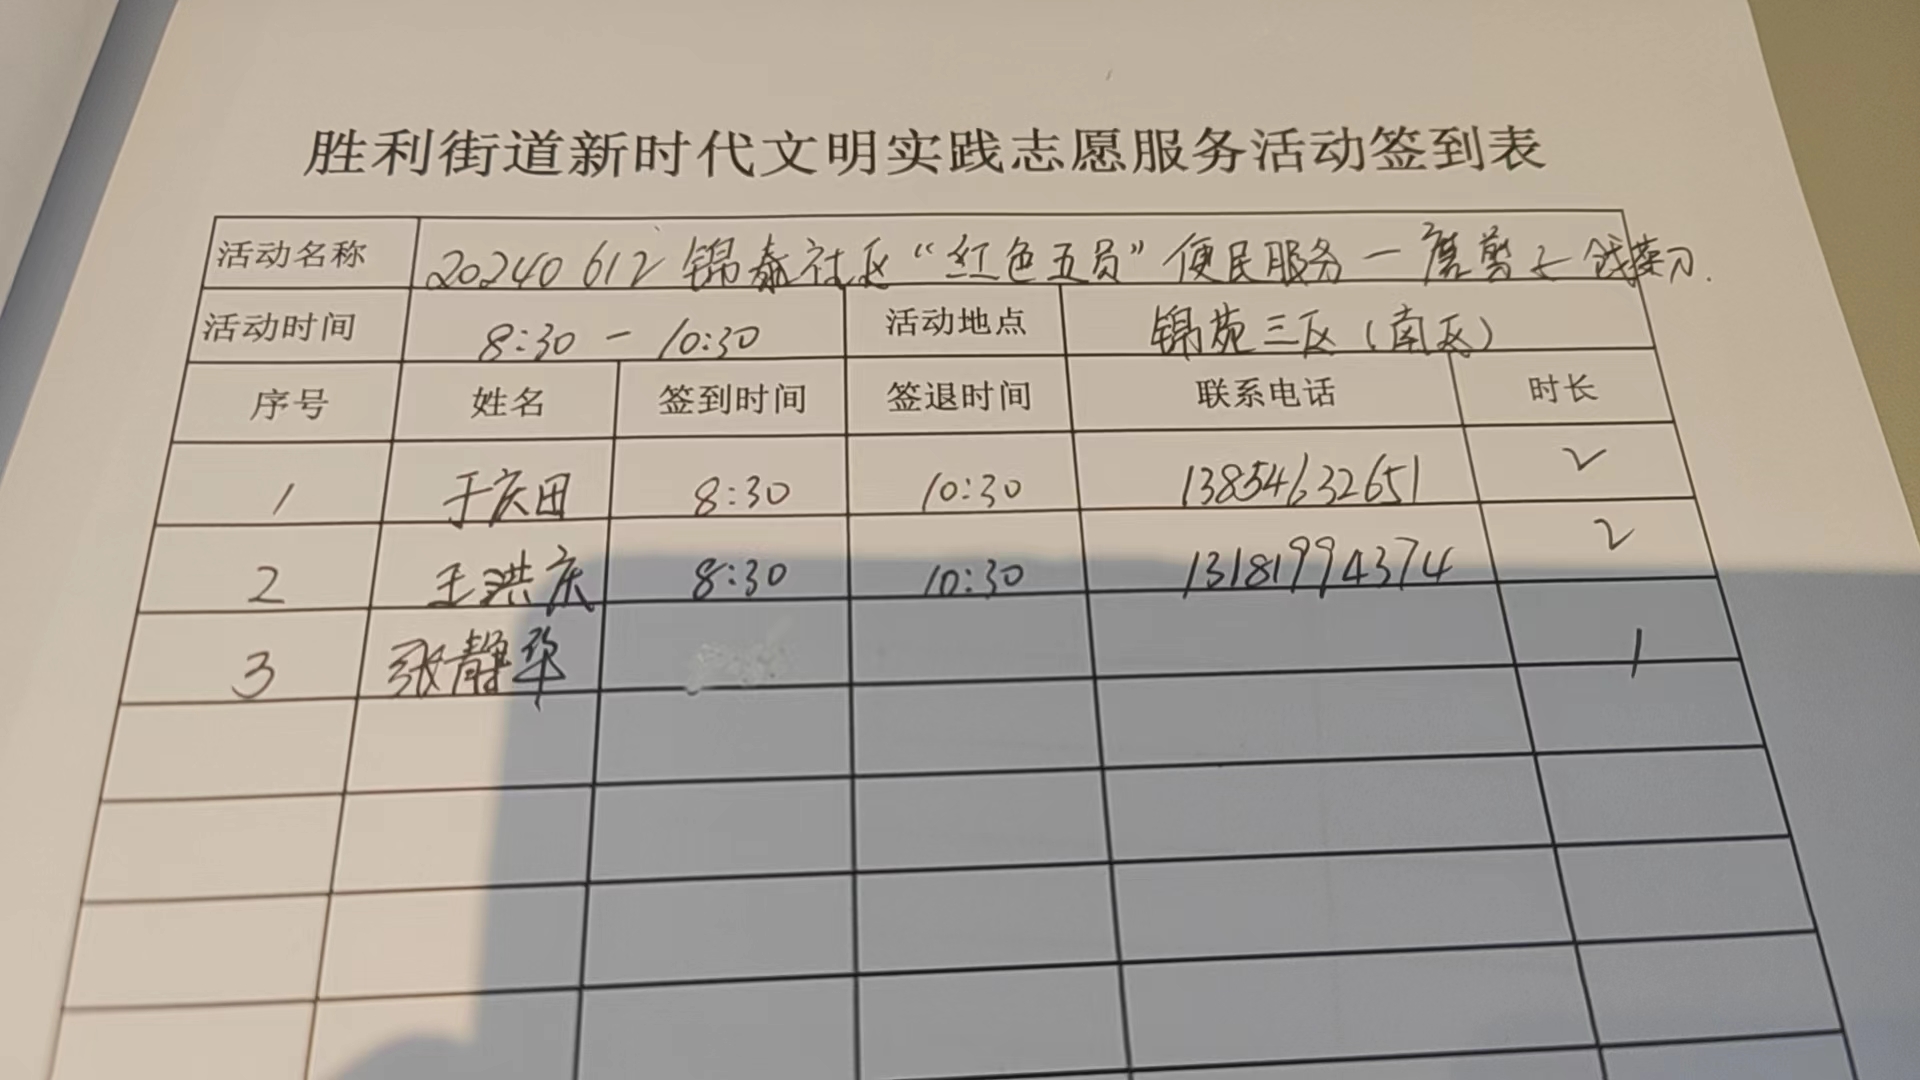 胜利街道新时代文明实践志愿服务活动签到表
活动名称 20240612 锦泰社区“红色五员”便民服务一磨剪子 戗菜刀.
活动时间 8:30 - 10:30 活动地点 锦苑三区（南区）
序号 姓名 签到时间 签退时间 联系电话 时长
1 于庆田 8:30 10:30 13854632651 2
2 王洪庆 8:30 10:30 13181994374 2
3 张静华 1